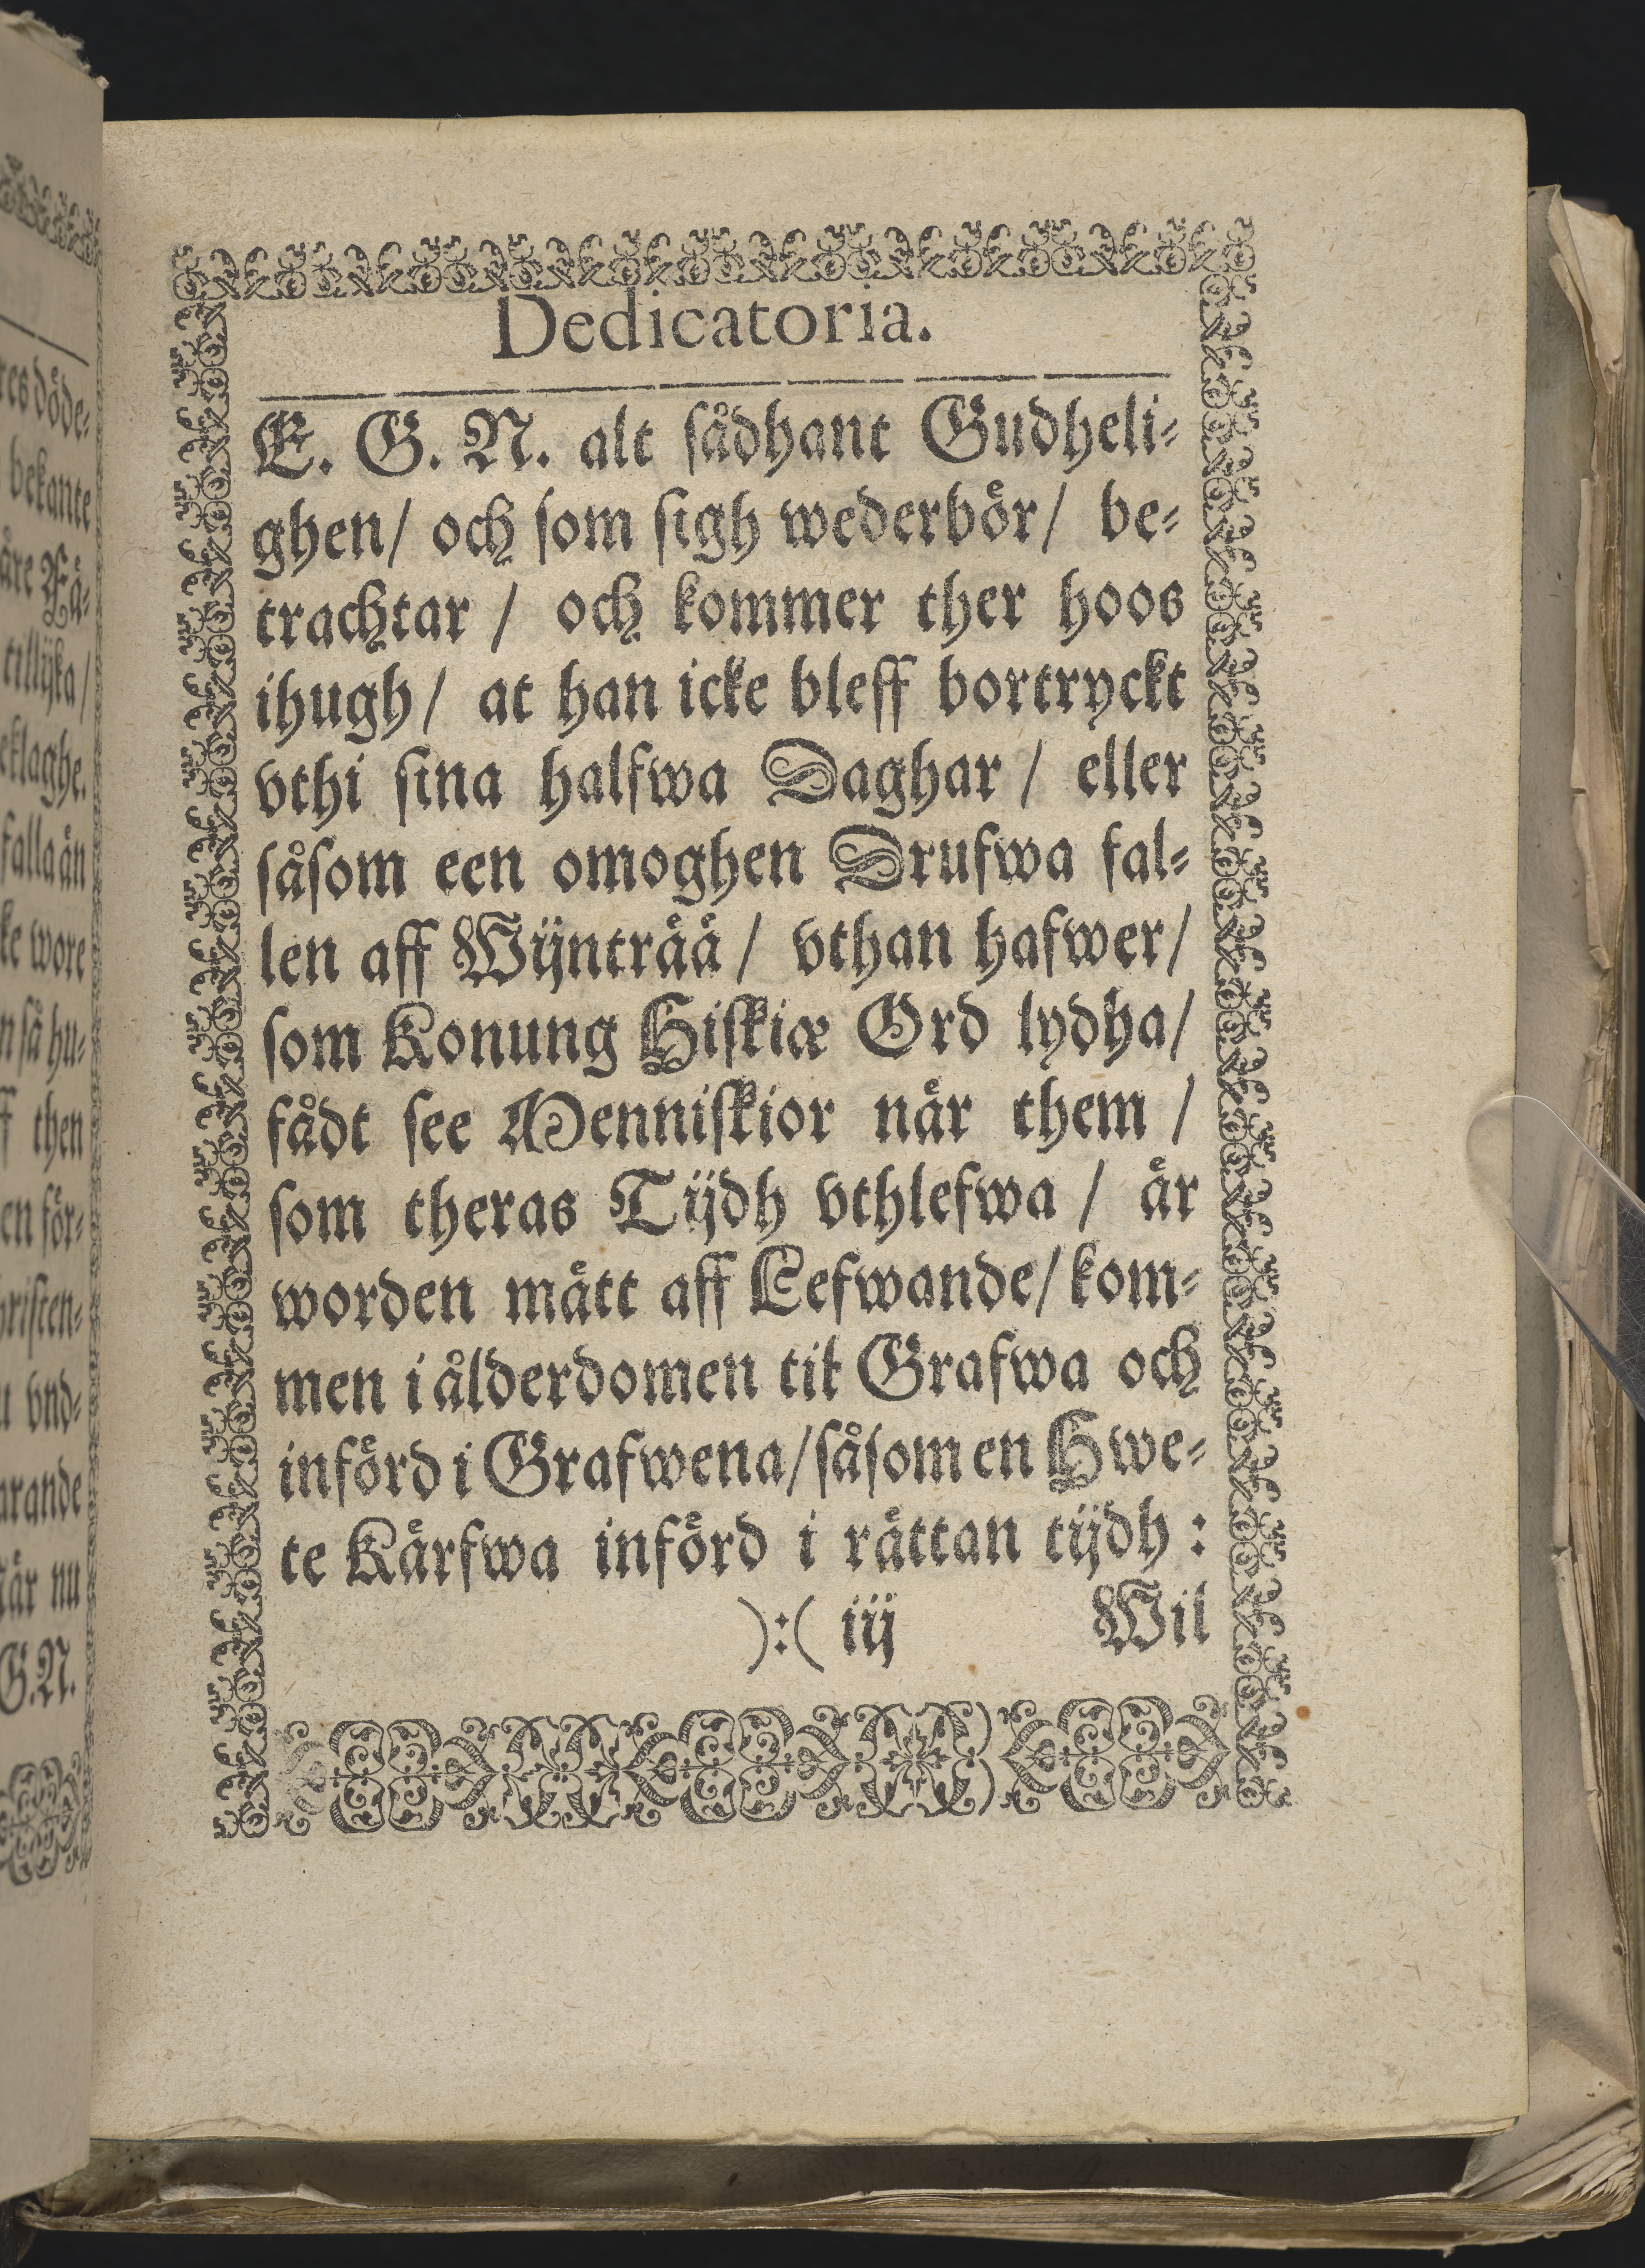 Dedicatoria.
E. G. N. alt sådhant Gudheli-
ghen/ och som sigh wederbör/ be-
trachtar / och kommer ther hoos
ihugh/ at han icke bleff bortryckt
vthi sina halfwa Daghar / eller
såsom een omoghen Drufwa fal-
len aff Wijnträä / vthan hafwer/
som Konung Hiskiæ Ord lydha/
fådt see Menniskior när them /
som theras Tijdh vthlefwa / är
worden mätt aff Lefwande/ kom-
men i ålderdomen til Grafwa och
införd i Grafwena/ såsom en Hwe-
te Kärfwa införd i rättan tijdh :
):( iij Wil
res döde-
bekante
åre Fä-
tillijka /
eklaghe.
falla än
ke wore
n så hu-
ff then
en för-
hristen-
u vnd-
arande
när nu
G.N.